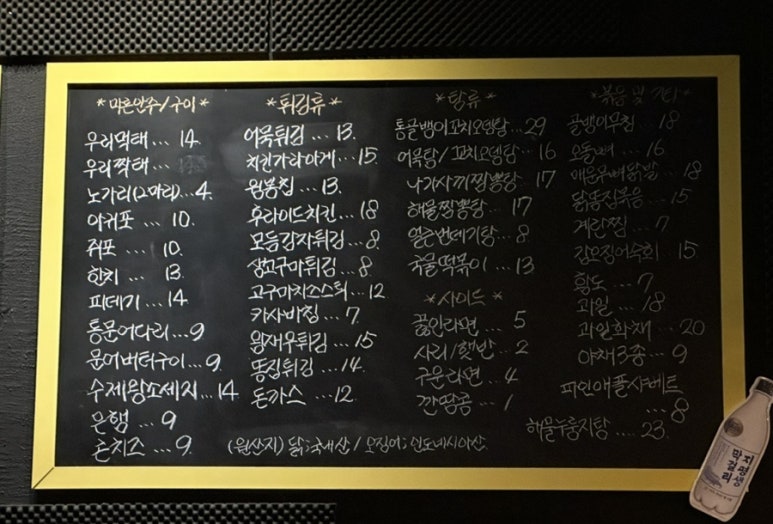 *마른안주/구이*
우리먹태 ... 14
우리짝태 ...
노가리(2마리)... 4
아귀포 ... 10
쥐포 ... 10
한치 ... 13
피데기 ... 14
통문어다리 ... 9
문어버터구이 ... 9
수제왕쏘세지 ... 14
은행 ... 9
콘치즈 ... 9
*튀김류*
어묵튀김 ... 13
치킨가라아게 ... 15
윙봉칩 ... 13
후라이드치킨 ... 18
모듬감자튀김 ... 8
생고구마튀김 ... 8
고구마치즈스틱 ... 12
카사바칩 ... 7
왕새우튀김 ... 15
똥집튀김 ... 14
돈까스 ... 12
*탕류*
통골뱅이꼬치오뎅탕 ... 29
어묵탕/꼬치오뎅탕 ... 16
나가사끼짬뽕탕 17
해물짬뽕탕 ... 17
얼큰번데기탕 ... 8
국물떡볶이 ... 13
*사이드*
끓인라면 ... 5
사리/햇반 ... 2
구운라면 ... 4
깐땅콩 ... 1
*볶음 및 기타*
골뱅이무침 ... 18
오돌뼈 ... 16
매운무뼈닭발 ... 18
닭똥집볶음 ... 15
계란찜 ... 7
갑오징어숙회 15
황도 ... 7
과일 ... 18
과일화채 ... 20
야채3종 ... 9
파인애플샤베트
... 8
해물누룽지탕 .... 23
(원산지) 닭:국내산 / 오징어:인도네시아산